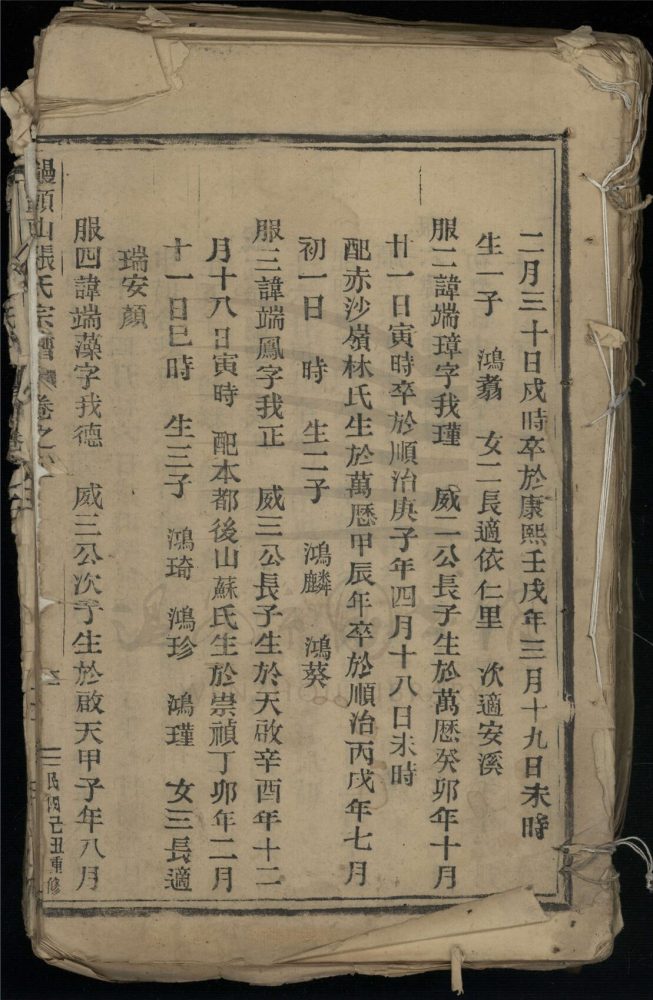 二月三十日戍時卒於康熙壬戌年三月十九日未時
生一子　鴻翥　女二長適依仁里　次適安溪
服二諱端璋字我瑾　威二公長子生於萬曆癸卯年十月
廿一日寅時卒於順治庚子年四月十八日未時
配赤沙嶺林氏生於萬曆甲辰年卒於順治丙戌年七月
初一日　時　生二子　鴻麟　鴻葵
服三諱端鳳字我正　威三公長子生於天啟辛酉年十二
月十八日寅時　配本都後山蘇氏生於崇禎丁卯年二月
十一日巳時　生三子　鴻琦　鴻珍　鴻瑾　女三長適
瑞安顏
服四諱端藻字我德　威三公次子生於啟天甲子年八月
饅頭山張氏宗譜　卷之　民國己丑重修